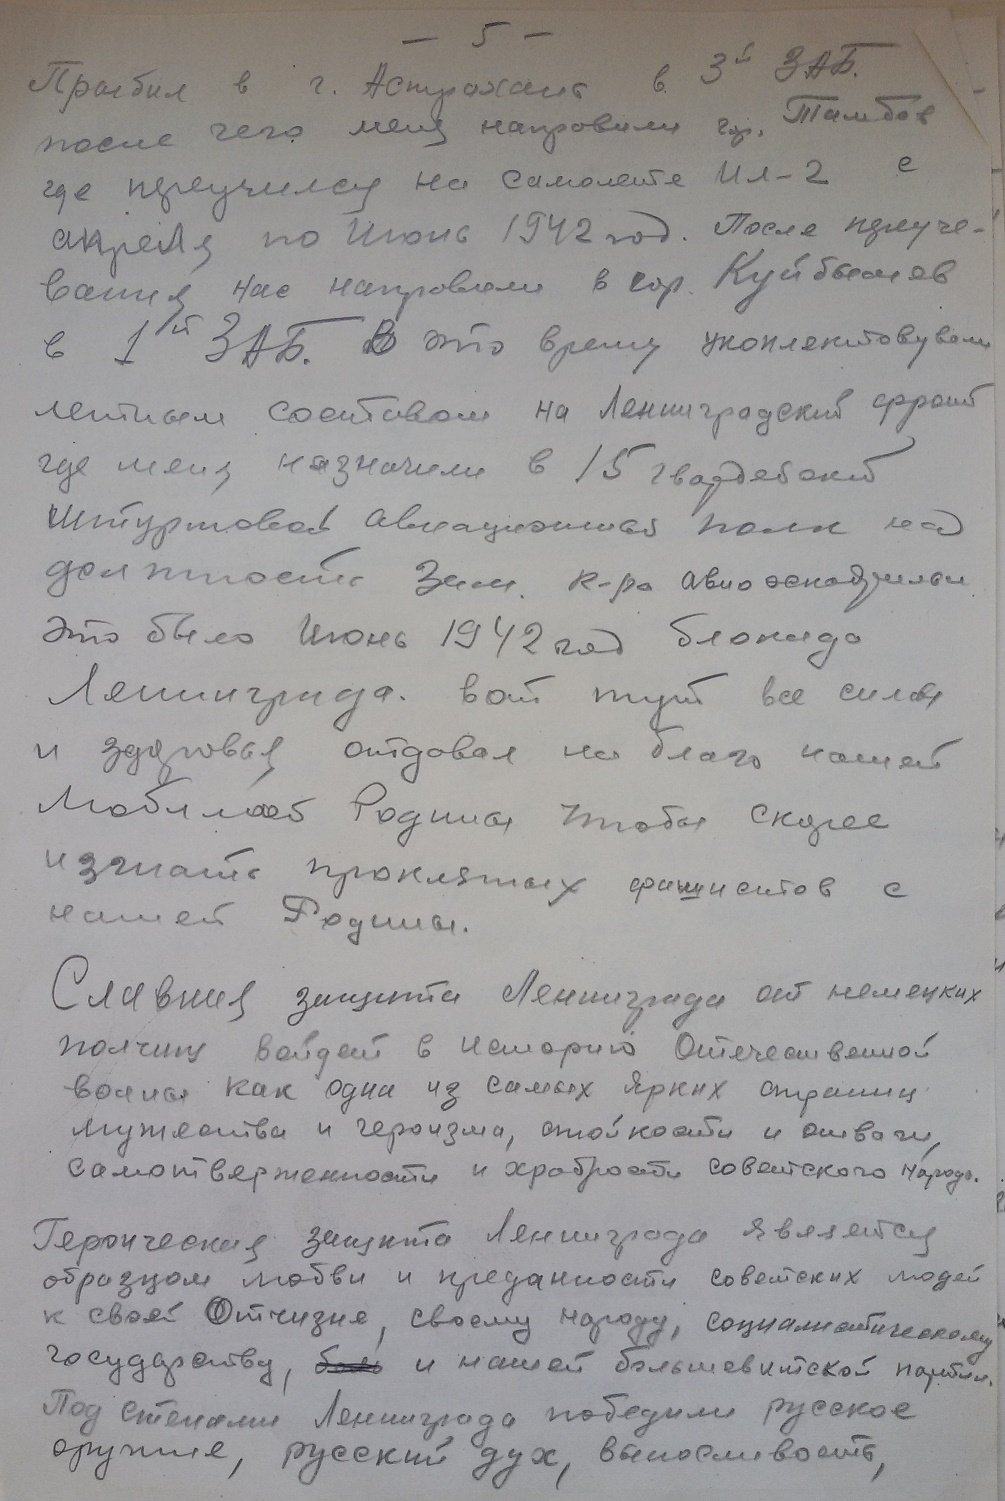 - 5 -
Прибыл в г. Астрахань в 3й ЗАБ.
после чего меня направили гор. Тамбов
где переучился на самолете Ил-2 с
апреля по Июнь 1942 год. После переуче-
вания нас направили в гор. Куйбышев
в 1й ЗАБ. В это время укоплектовували
летным составом на Ленинградский фронт
где меня назначили в 15 гвардейский
штурмовой авиационный полк на
должность Зам. к-ра авиоэскадрильи
Это было Июнь 1942 год блокада
Ленинграда. вот тут все силы
и здоровья отдавал на благо нашей
любимой Родины чтобы скорее
изгнать проклятых фашистов с
нашей Родины.
Славная защита Ленинграда от немецких
полчищ войдет в историю Отечественной
войны как одна из самых ярких страниц
мужества и героизма, стойкости и отваги,
самотверженности и храбрости советского народа.
Героическая защита Ленинграда является
образцом любви и преданности советских людей
к своей Отчизне, своему народу, социалистическому
государству, и нашей большевитской партии.
Под стенами Ленинграда победили русское
оружие, русский дух, выносливость,